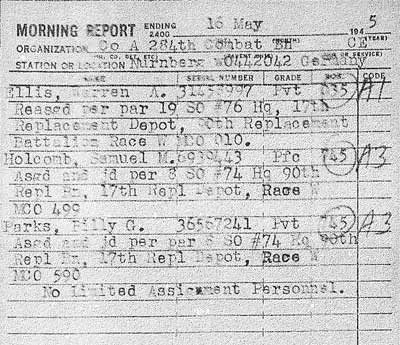 MORNING REPORT ENDING 2400 16 May 1945
ORGANIZATION Co A 284th Combat En CE
STATION OR LOCATION Nurnberg WO442042 Germany
NAME SERIAL NUMBER GRADE MOS. CODE
Ellis, Warren A. Pvt A1
Reasgd per par 19 SO #76 Hq, 17th
Replacement Depot, 90th Replacement
Battalion Race W MCO 010.
Holcomb, Samuel M. 6939443 Pfc 745 A3
Asgd and jd per par 8 SO #74 Hq 90th
Repl Bn, 17th Repl Depot, Race W
MCO 499
Parks, Billy G. 36567241 Pvt 745 A3
Asgd and jd per par 8 SO #74 Hq 90th
Repl Bn, 17th Repl Depot, Race W
MCO 590
No Limited Assignment Personnel.